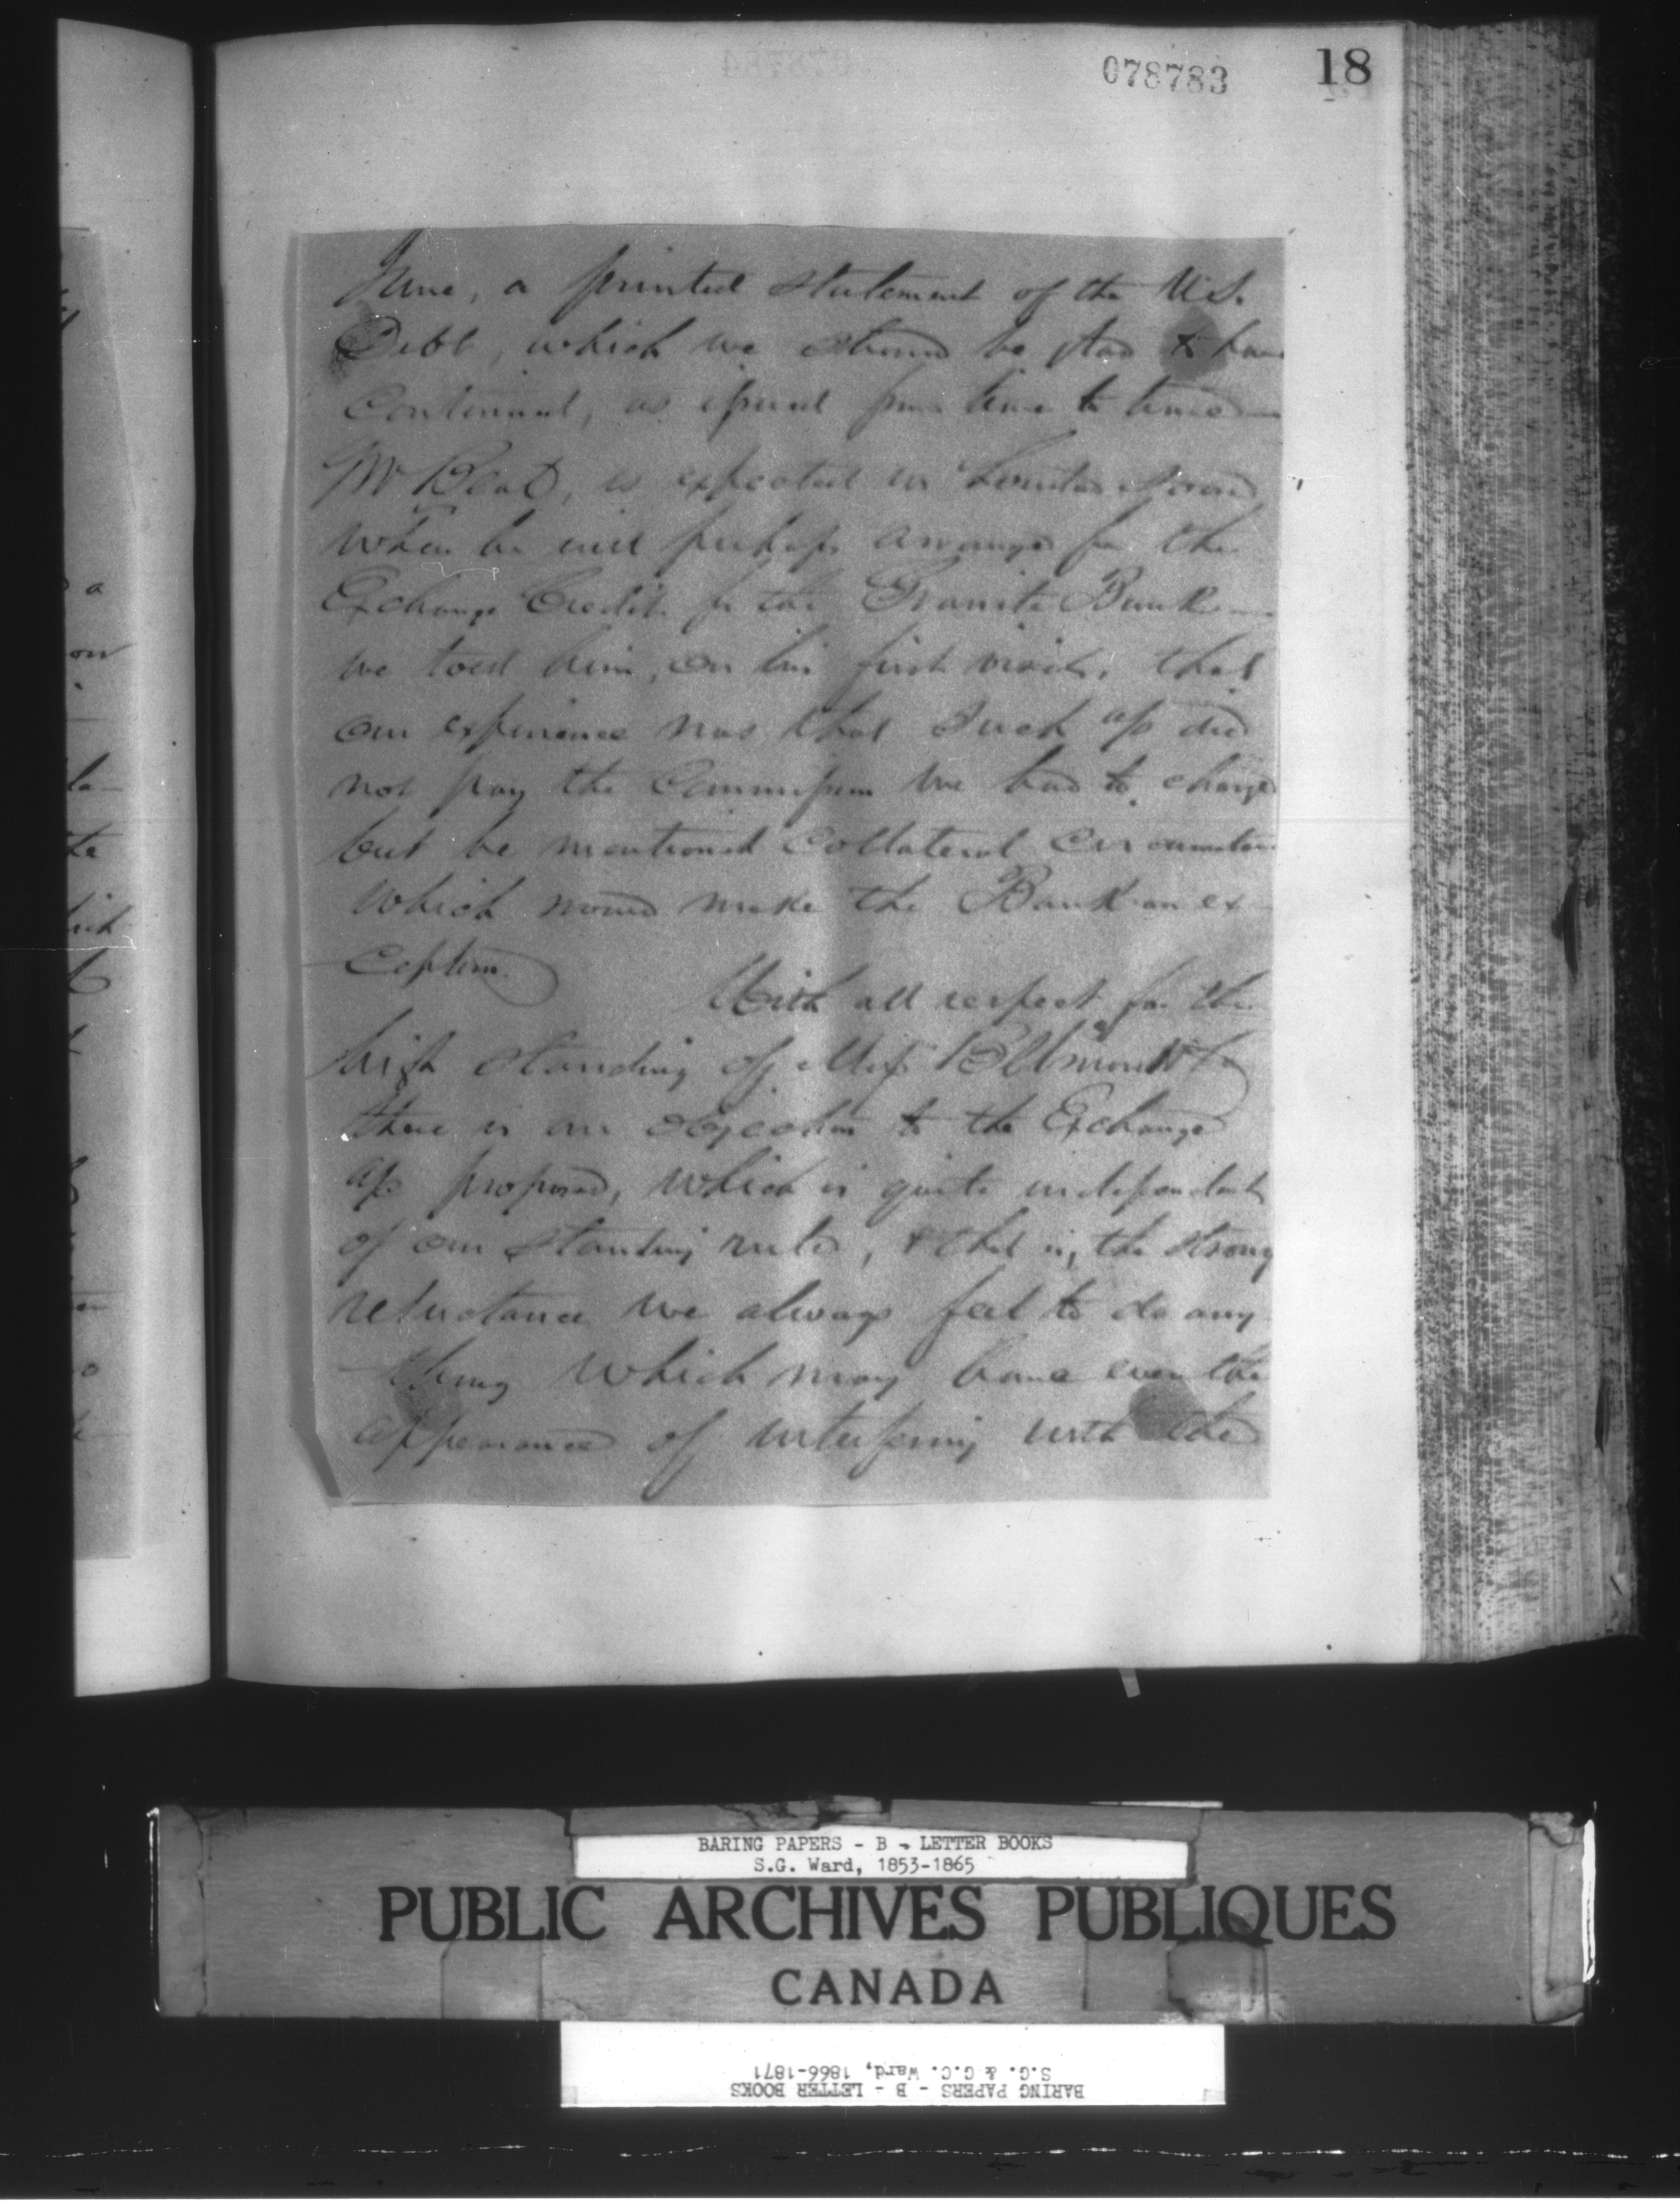 078783 18
June, a printed statement of the U.S.
Debt, which we should be glad to have
continued, as issued from time to time
Mr Beal, is expected in London soon
when he will perhaps arrange for the
Exchange Credit for the Granite Bank
we told him, on his first visit, that
our experience was that such a/cs did
not pay the Commission we had to charge
but he mentioned collateral circumstan
which would make the Bank an ex
ception.
With all respect for the
high standing of Messs Belmont & Co
there is an objection to the Exchange
a/c proposed, which is quite independent
of our standing rule, & that is, the strong
reluctance we always feel to do any
thing which may have even the
appearance of interfering with the
BARING PAPERS - B - LETTER BOOKS
S.G. Ward, 1853-1865
PUBLIC ARCHIVES PUBLIQUES
CANADA
BARING PAPERS - B - LETTER BOOKS
S.G. & G.C. Ward, 1866-1871